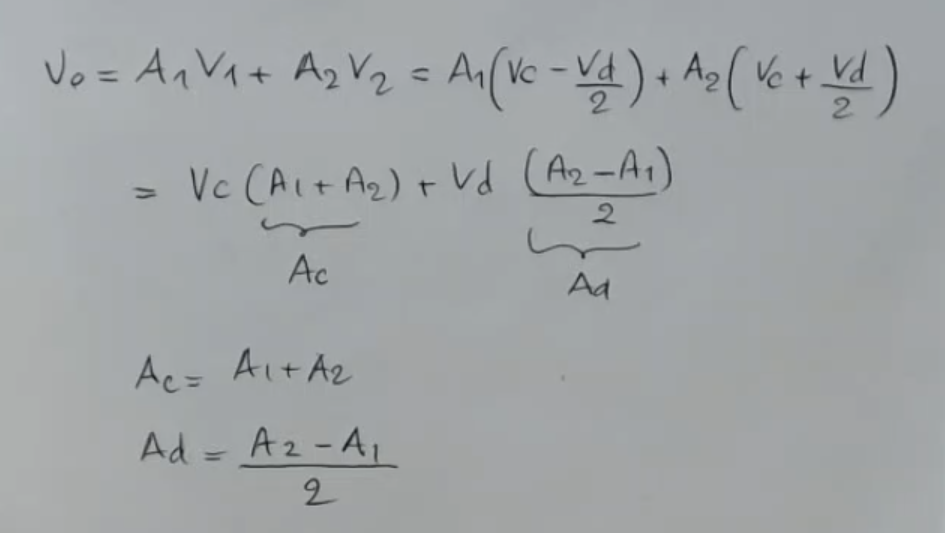 Vo = A1V1 + A2V2 = A1(Vc - Vd/2) + A2(Vc + Vd/2)
= Vc (A1 + A2) + Vd (A2 - A1)/2
Ac Ad
Ac = A1 + A2
Ad = A2 - A1/2